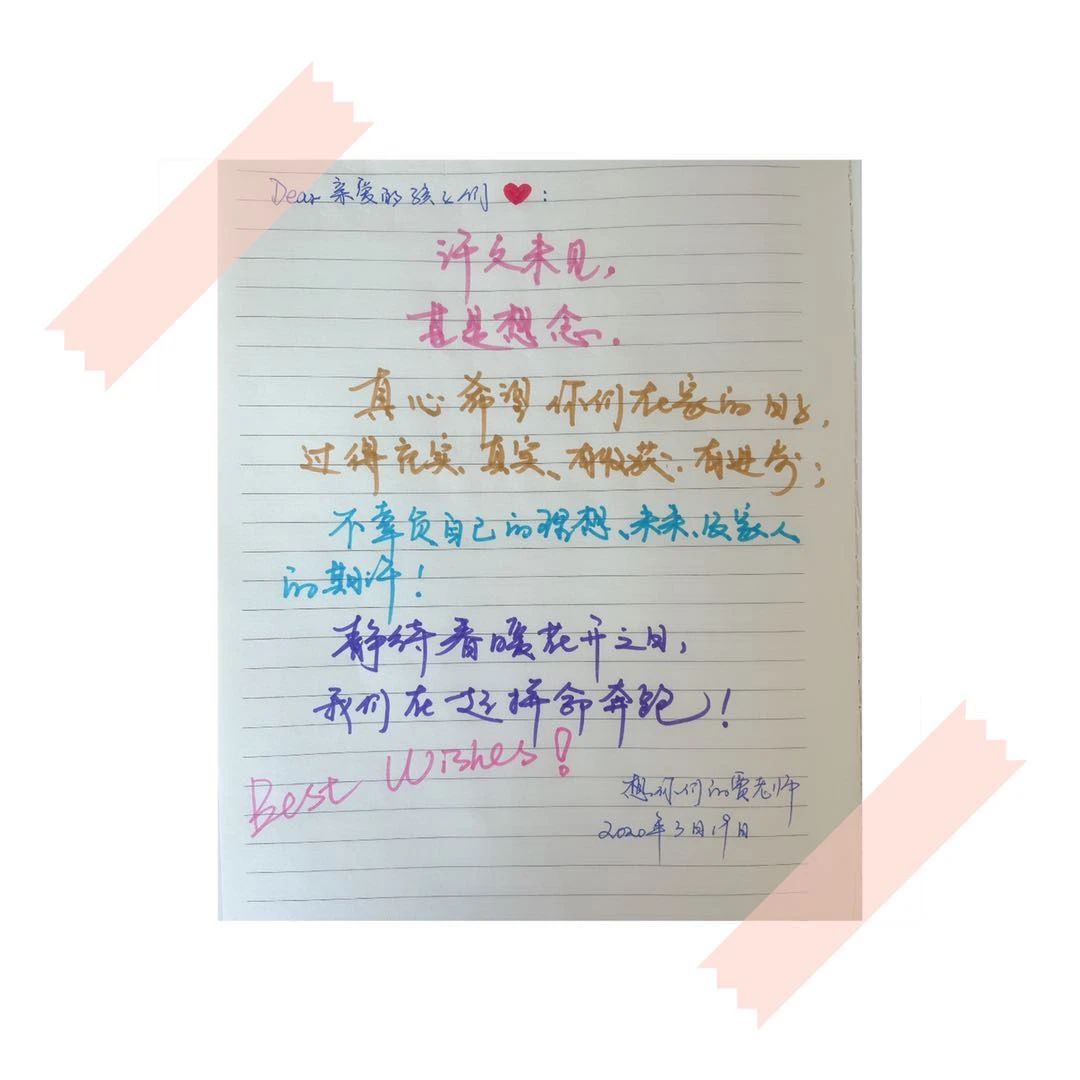 Dear 亲爱的孩子们❤:
许久未见,
甚是想念。
真心希望你们在家的日子,
过得充实、真实、有收获、有进步;
不辜负自己的理想、未来、及家人
的期许!
静待春暖花开之日,
我们在一起拼命奔跑!
Best Wishes!
想你们的贾老师
2020年3月19日